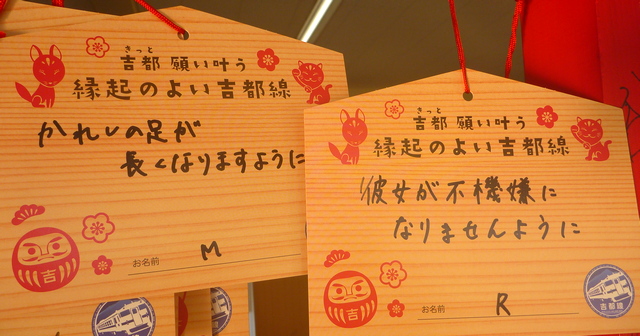 きっと
吉都 願い叶う
縁起のよい吉都線
かれしの足が
長くなりますように
吉
お名前
M
きっと
吉都 願い叶う
縁起のよい吉都線
彼女が不機嫌に
なりませんように
吉
お名前
R
吉都線